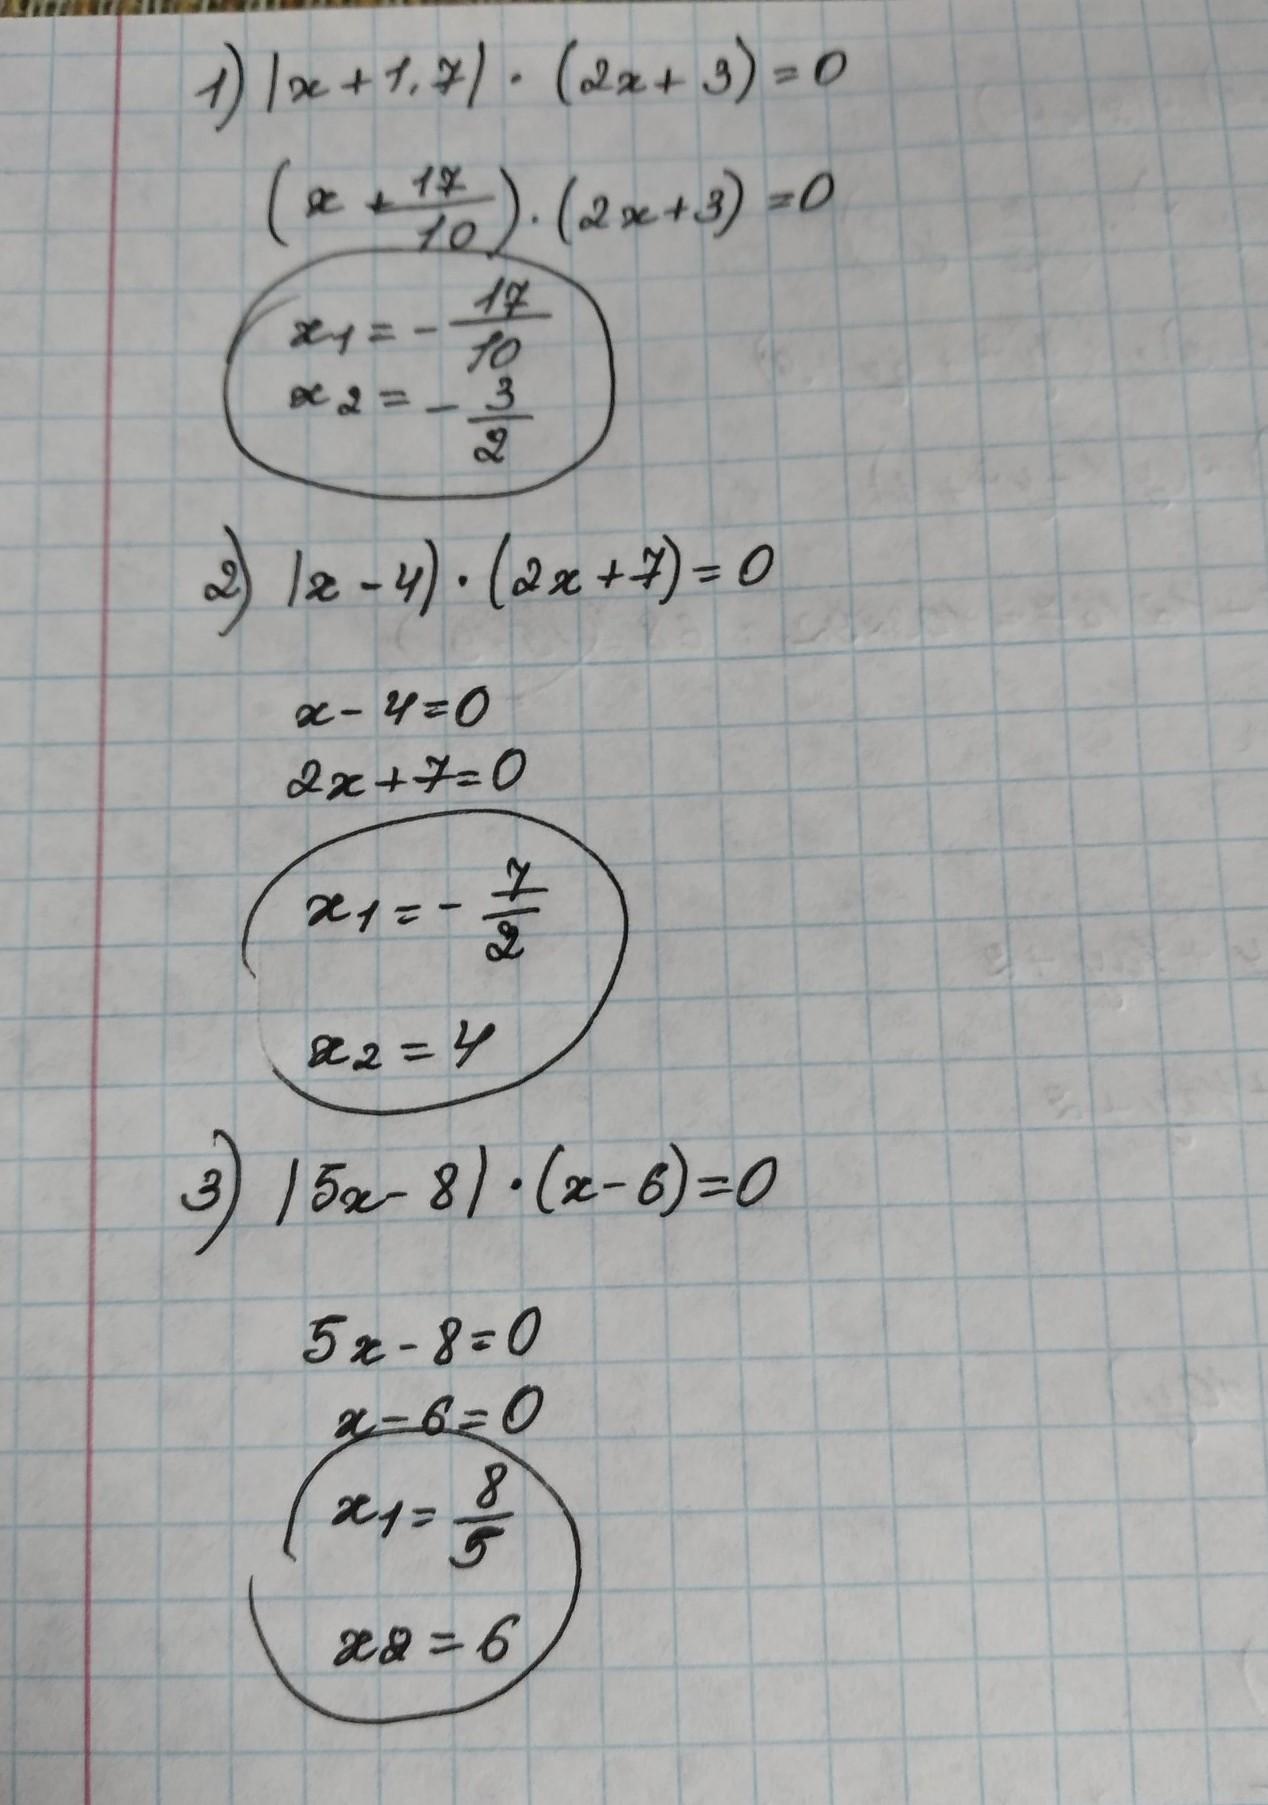 1) |x + 1,7| · (2x + 3) = 0
(x + 17/10) · (2x + 3) = 0
x1 = - 17/10
x2 = - 3/2
2) |x - 4) · (2x + 7) = 0
x - 4 = 0
2x + 7 = 0
x1 = - 7/2
x2 = 4
3) |5x - 8| · (x - 6) = 0
5x - 8 = 0
x - 6 = 0
x1 = 8/5
x2 = 6